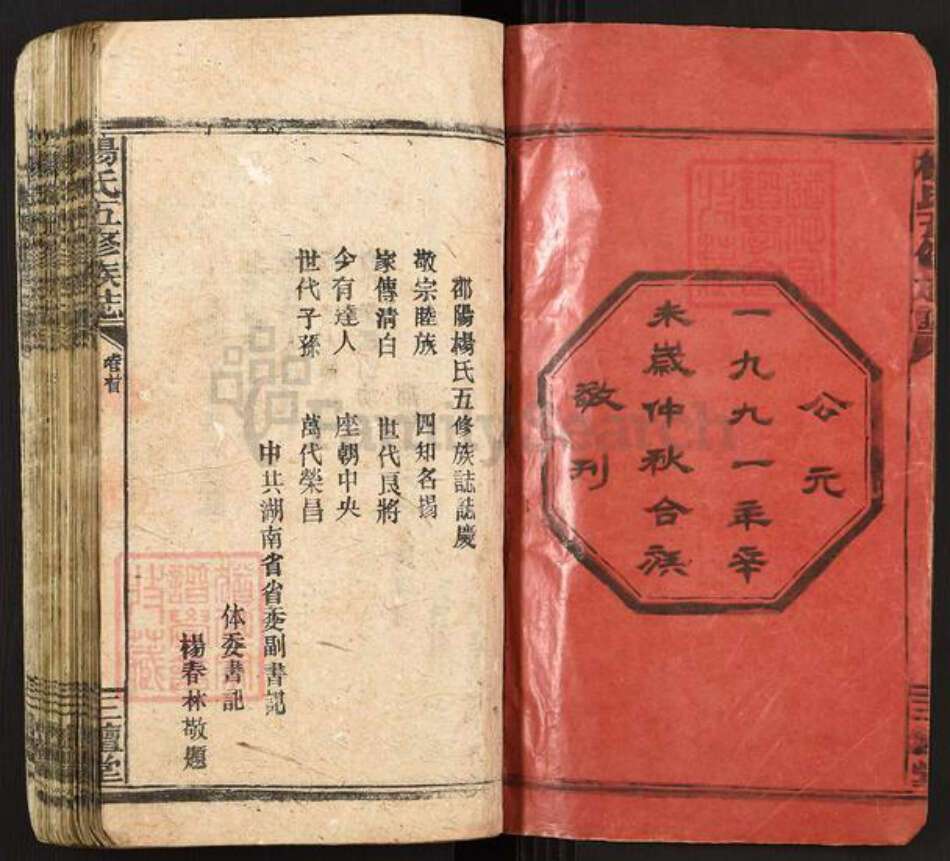 公元
一九九一年辛
未歲仲秋合族
敬刊
邵陽楊氏五修族誌誌慶
敬宗睦族 四知名揚
家傳清白 世代良將
今有達人 座朝中央
世代子孫 萬代榮昌
中共湖南省省委副書記
体委書記
楊春林敬題
楊氏五修族誌
卷首
三壇堂
FamilySearch